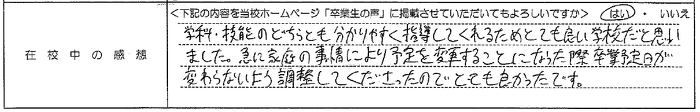 <下記の内容を当校ホームページ「卒業生の声」に掲載させていただいてもよろしいですか> はい ・ いいえ
在校中の感想
学科・技能のどちらとも分かりやすく指導してくれるためとても良い学校だと思い
ました。急に家庭の事情により予定を変更することになった際卒業予定日が
変わらないよう調整してくださったのでとても良かったです。